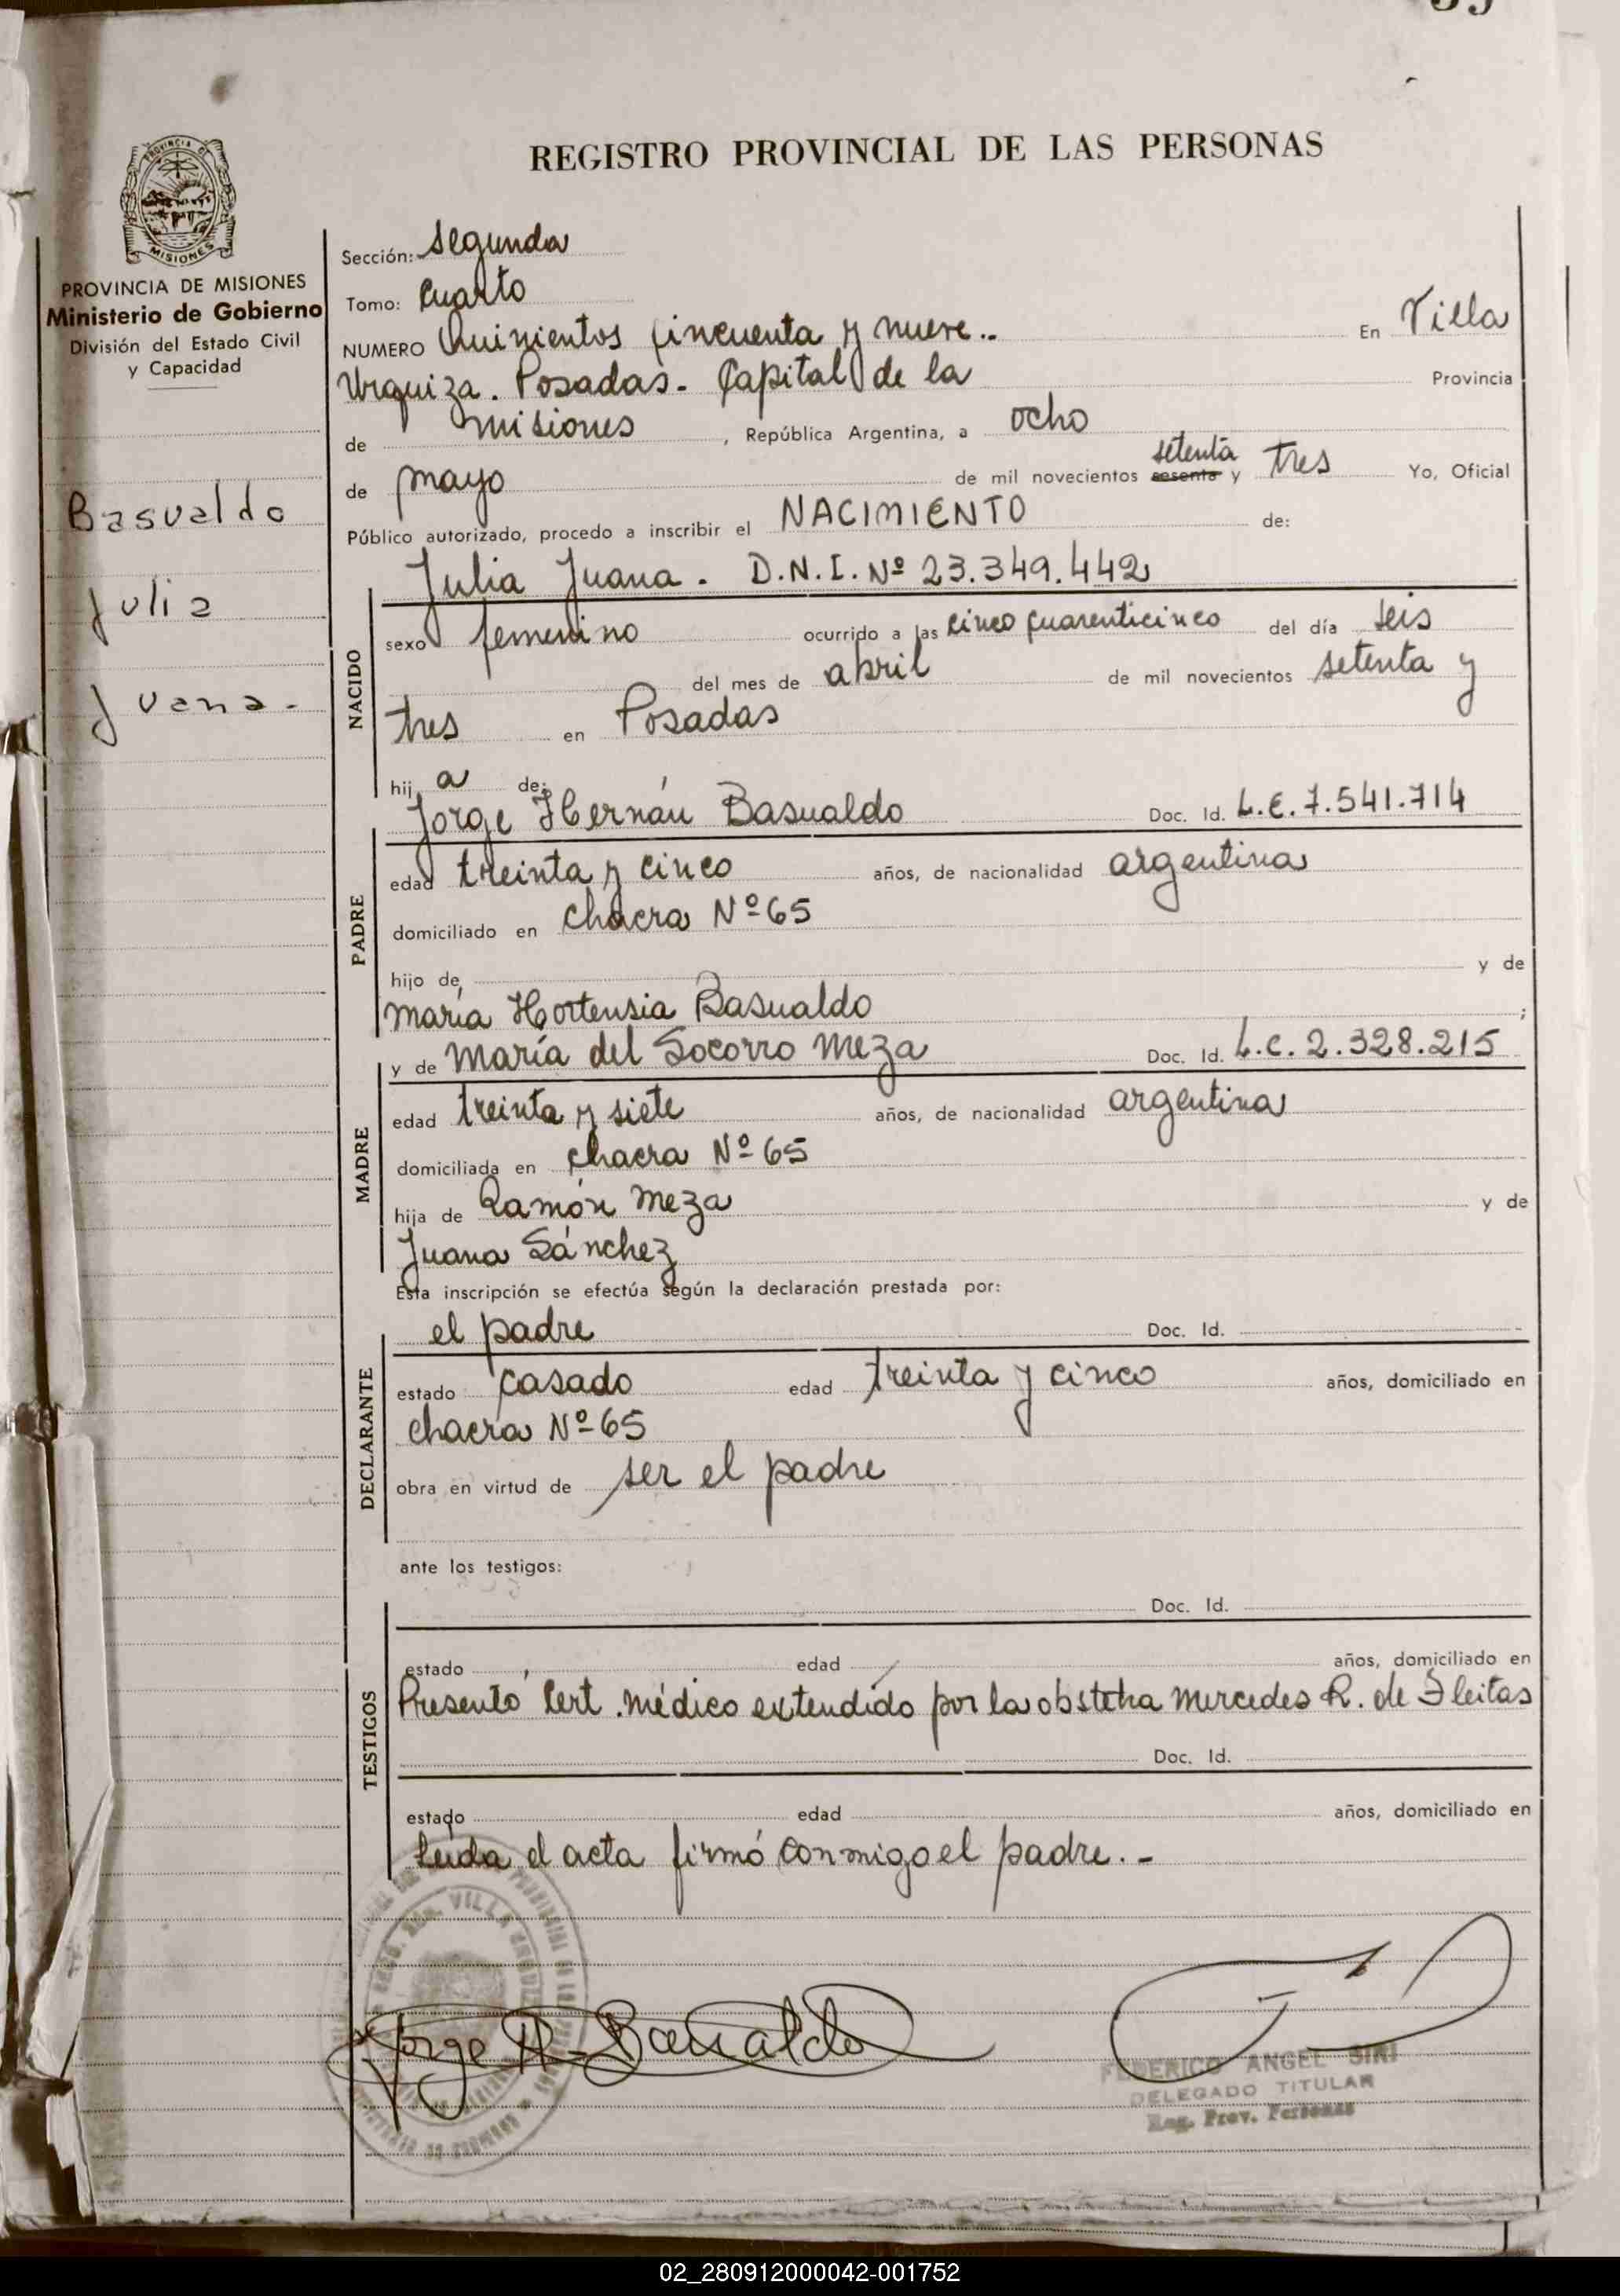 REGISTRO PROVINCIAL DE LAS PERSONAS
PROVINCIA DE MISIONES
Ministerio de Gobierno
División del Estado Civil
y Capacidad
Basualdo
Julia
Juana.-
Sección: Segunda
Tomo: Cuarto
NUMERO Quinientos cincuenta y nueve.. En Villa
Urquiza. Posadas. Capital de la Provincia
de Misiones, República Argentina, a ocho
de mayo de mil novecientos setenta sesenta y tres Yo, Oficial
Público autorizado, procedo a inscribir el NACIMIENTO de:
Julia Juana. D.N.I. Nº 23.349.442
NACIDO
sexo femenino ocurrido a las cinco cuarenticinco del día seis
del mes de abril de mil novecientos setenta y
tres en Posadas
hij a de:
Jorge Hernán Basualdo Doc. Id. L.E. 7.541.714
PADRE
edad treinta y cinco años, de nacionalidad argentina
domiciliado en chacra Nº 65
hijo de y de
María Hortensia Basualdo ;
y de María del Socorro Meza Doc. Id. L.C. 2.328.215
MADRE
edad treinta y siete años, de nacionalidad argentina
domiciliada en chacra Nº 65
hija de Ramón Meza y de
Juana Sánchez
Esta inscripción se efectúa según la declaración prestada por:
el padre Doc. Id.
DECLARANTE
estado casado edad treinta y cinco años, domiciliado en
chacra Nº 65
obra en virtud de ser el padre
ante los testigos:
Doc. Id.
TESTIGOS
estado edad años, domiciliado en
Presentó Cert. médico extendido por la obstetra Mercedes R. de Fleitas
Doc. Id.
estado edad años, domiciliado en
Leída el acta firmó conmigo el padre.-
Jorge H. Basualdo
FEDERICO ANGEL SINI
DELEGADO TITULAR
Reg. Prov. Personas
02_280912000042-001752